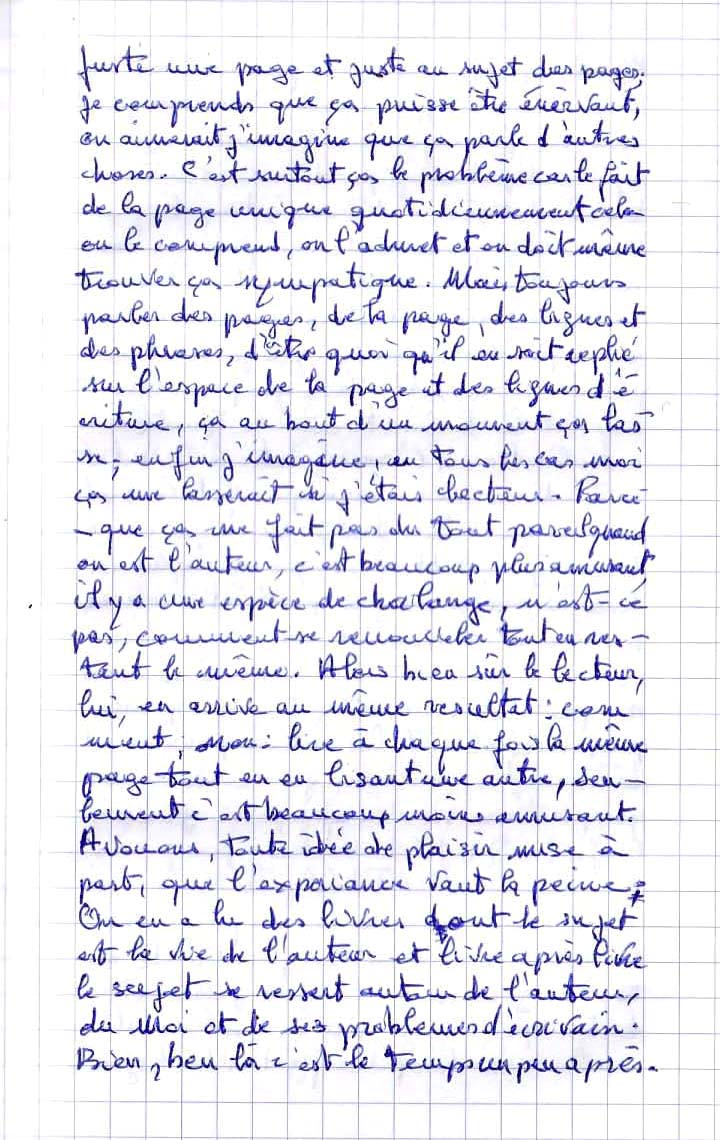 juste une page et juste au sujet des pages.
Je comprends que ça puisse être énervant,
on aimerait j'imagine que ça parle d'autres
choses. C'est surtout ça le problème car le fait
de la page unique quotidiennement cela
on le comprend, on l'admet et on doit même
trouver ça sympatique. Mais toujours
parler des pages, de la page, des lignes et
des phrases, d'être quoi qu'il en soit replié
sur l'espace de la page et des lignes d'é
criture, ça au bout d'un moment ça las
se, enfin j'imagine, en tous les cas moi
ça me lasserait si j'étais lecteur. Parce
-que ça me fait pas du tout pareil quand
on est l'auteur, c'est beaucoup plus amusant,
il y a une espèce de chalange, n'est-ce
pas, comment se renouveler tout en res-
tant le même. Alors bien sûr le lecteur,
lui, en arrive au même resultat : com
ment, non : lire à chaque fois la même
page tout en en lisant une autre, seu-
lement c'est beaucoup moins amusant.
Avouons, toute idée de plaisir mise à
part, que l'expériance vaut la peine ;
On en a lu des livres dont le sujet
est la vie de l'auteur et livre après livre
le sujet se ressert autour de l'auteur,
du Moi et de ses problèmes d'écrivain.
Bien, ben là c'est le temps un peu après.